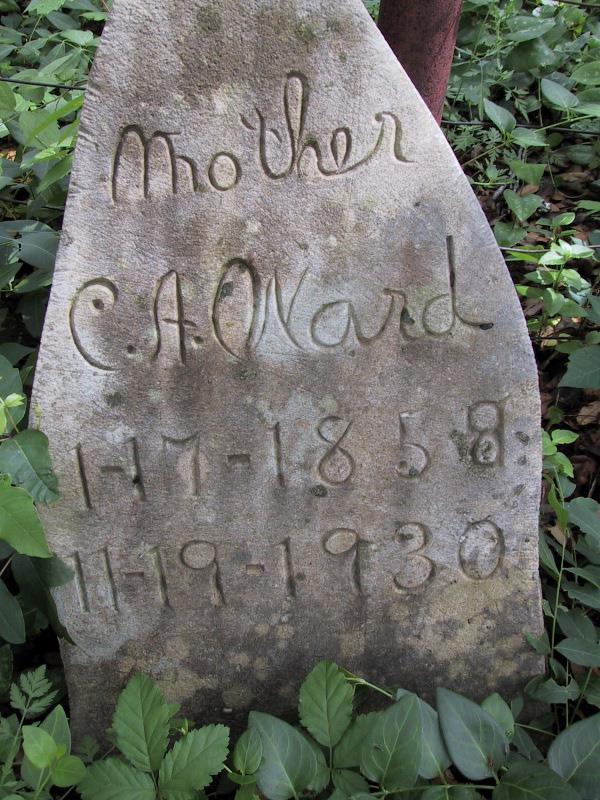 Mother
C.A. Ward
1-17-1858
11-19-1930